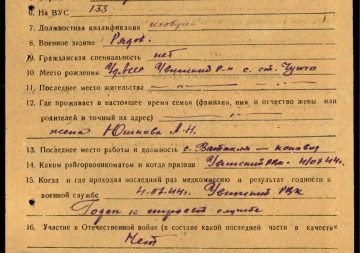 6. На ВУС 133
7. Должностная квалификация необуч
8. Военное звание Рядов.
9. Гражданская специальность нет
10. Место рождения УдАССР Увинский р-н с. ст.
11. Последнее место жительства
12. Где проживает в настоящее время семья (фамилия, имя и отчество жены или
родителей и точный их адрес)
жена Юшкова А.Н.
13. Последнее место работы и должность с. коновод
14. Каким райгорвоенкоматом и когда призван Увинский РВК 4/07.44 г.
15. Когда и где проходил последний раз медкомиссию и результат годности к
военной службе 4.07.44 г. Увинский РВК
Годен к строевой службе
16. Участие в Отечественной войне (в составе какой последней части в качестве
Нет